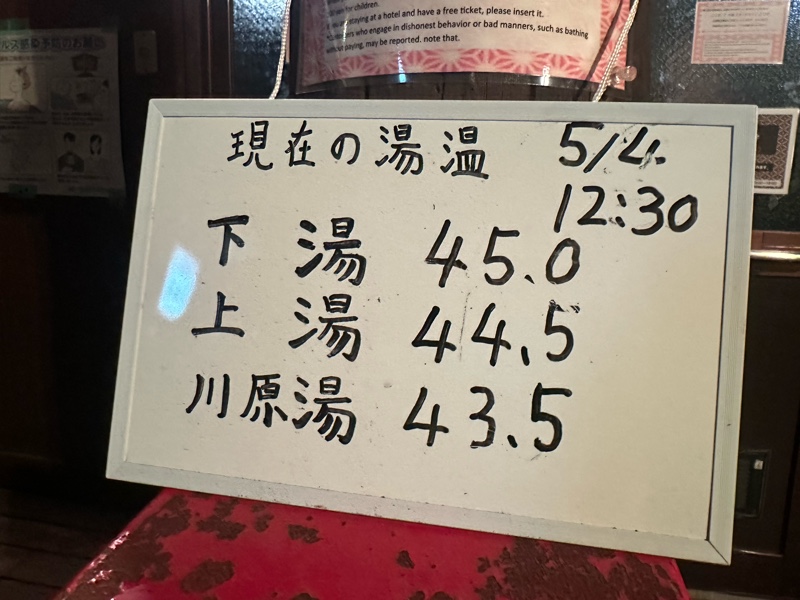 for children.
staying at a hotel and have a free ticket, please insert it.
who engage in dishonest behavior or bad manners, such as bathing
without paying, may be reported. note that.
現在の湯温 5/4.
12:30
下湯 45.0
上湯 44.5
川原湯 43.5